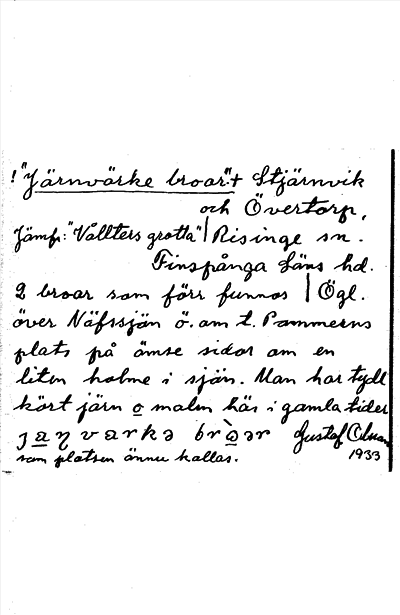 ! "Järnvärke broar".+ Stjärnvik
och Övertorp,
Jämf.: "Vållters grotta" | Risinge sn.
Finspånga Läns hd.
2 broar som förr funnos | Ögl.
över Näfssjön ö. om t. Pammerns
plats på ömse sidor om en
liten holme i sjön. Man har tydl
kört järn o malm här i gamla tider
som platsen ännu kallas.
Gustaf
1933